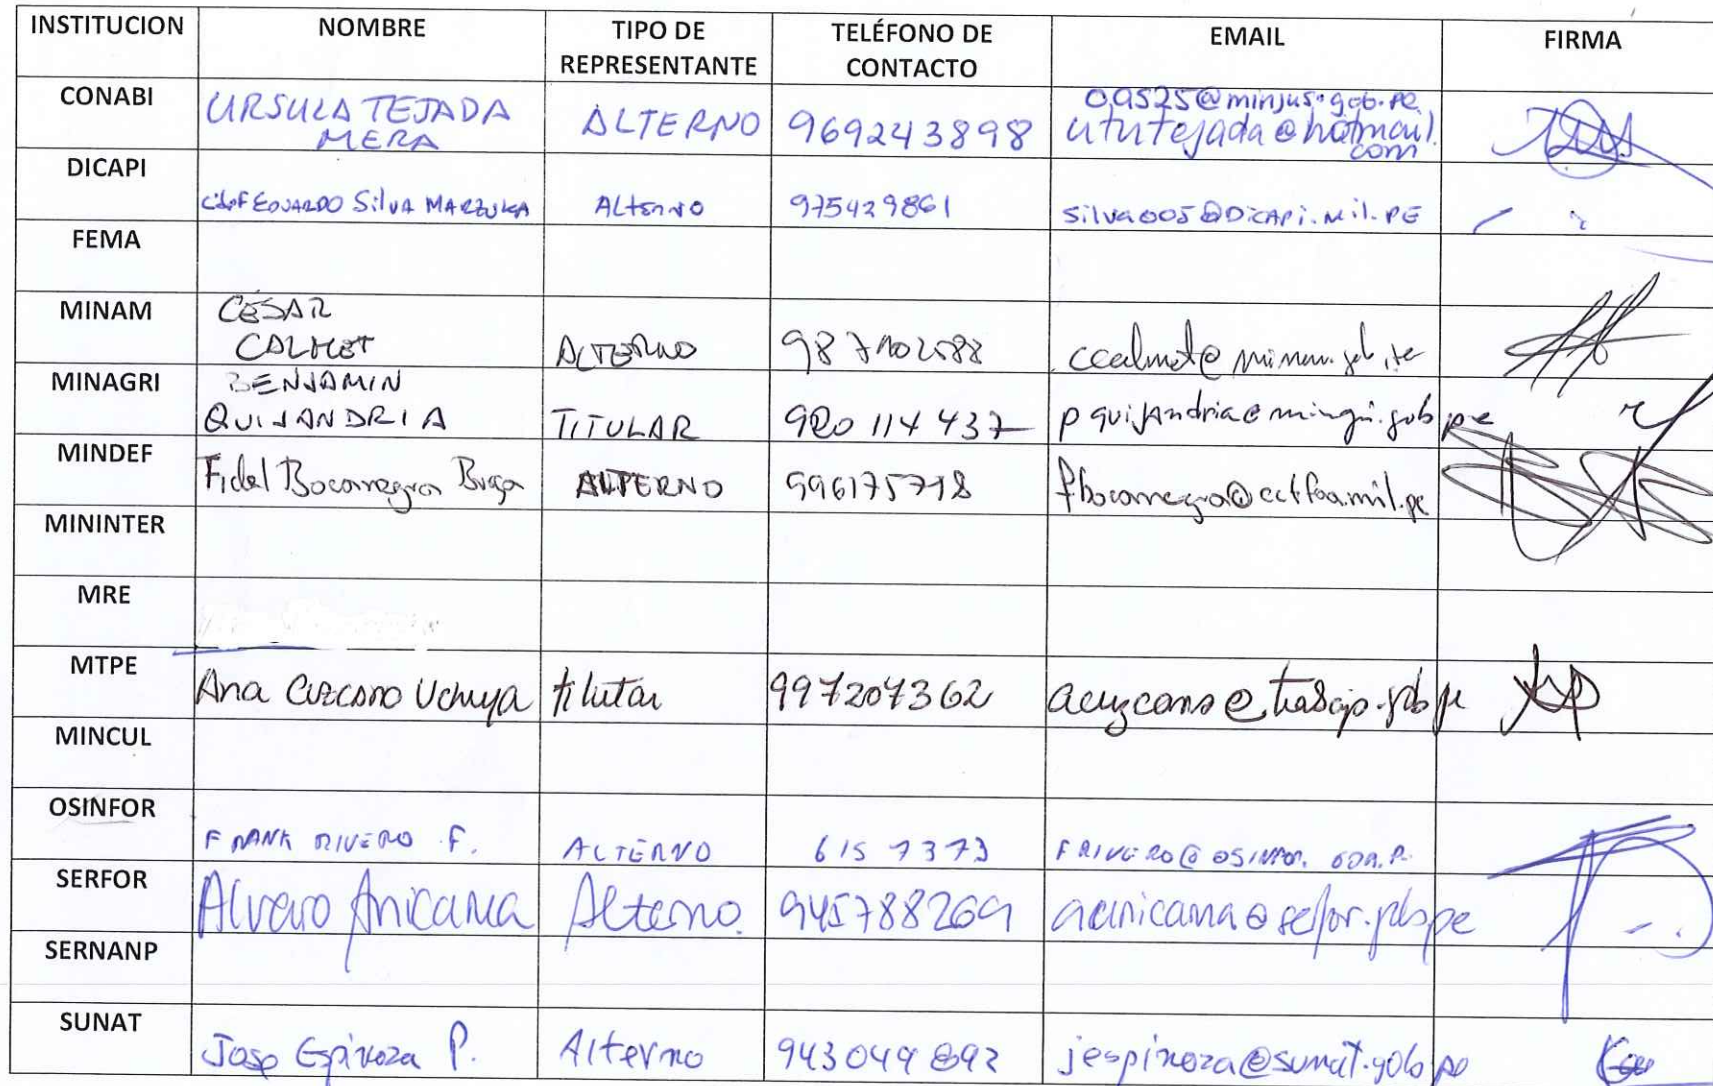 INSTITUCION NOMBRE TIPO DE REPRESENTANTE TELÉFONO DE CONTACTO EMAIL FIRMA
CONABI URSULA TEJADA MERA ALTERNO 969243898 09525@minjus.gob.pe ututejada@hotmail.com
DICAPI EDUARDO SilVA MARZUKA ALTERNO 975429861 silva005@DICAPI.Mil.PE
FEMA
MINAM CÉSAR CALMET ALTERNO ccalmet@minam.gob.pe
MINAGRI BENJAMIN QUIJANDRIA TITULAR 980 114 437 pquijandria@minagri.gob.pe
MINDEF Fidel Bocanegra ALTERNO 996175718 fbocanegra@ccffaa.mil.pe
MININTER
MRE
MTPE Ana Cuzcano Uchuya titular 997207362 acuzcano@trabajo.gob.pe
MINCUL
OSINFOR FRANK RIVERO F. ALTERNO 615 7373 FRIVERO@OSINFOR.GOB.P.
SERFOR Alvaro Anicama Alterno. 945788269 aanicama@serfor.gob.pe
SERNANP
SUNAT Jose Espinoza P. Alterno 943049892 jespinoza@sunat.gob.pe